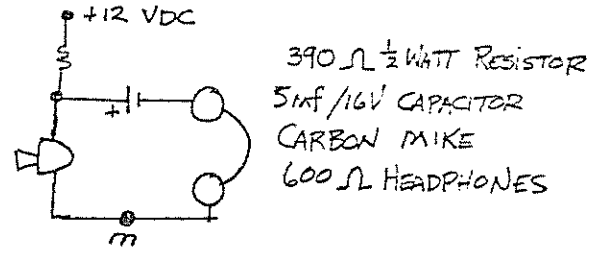 +12 VDC
390 Ω ½ WATT RESISTOR
5mf/16V CAPACITOR
CARBON MIKE
600 Ω HEADPHONES
+
m